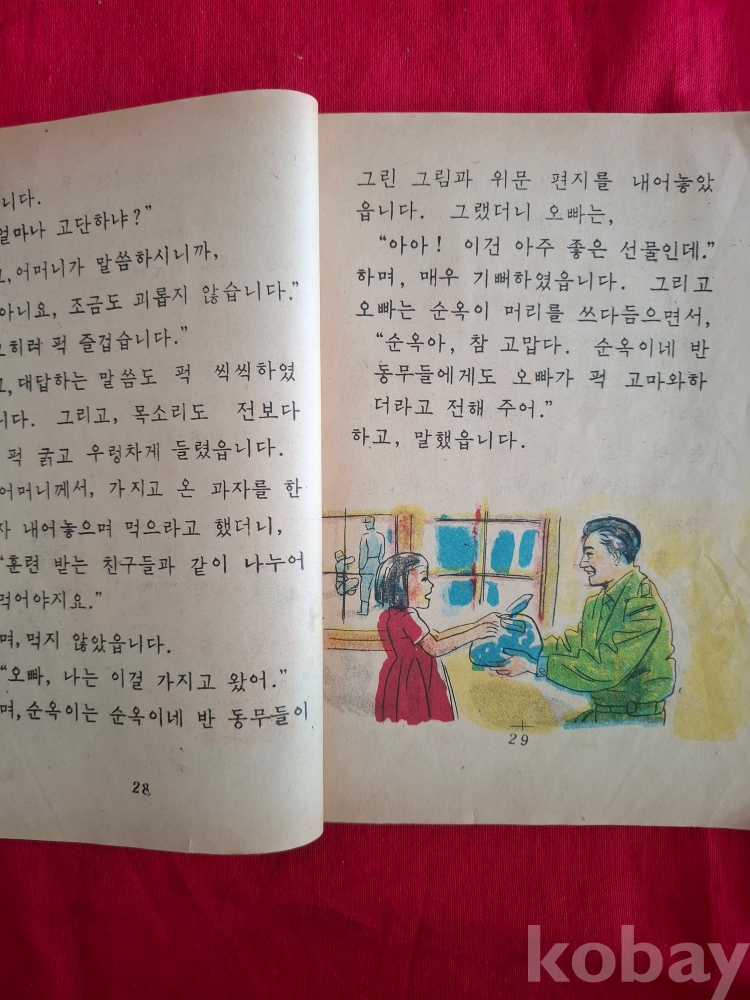 니다.
얼마나 고단하냐?”
고, 어머니가 말씀하시니까,
아니요, 조금도 괴롭지 않습니다.”
오히려 퍽 즐겁습니다.”
고, 대답하는 말씀도 퍽 씩씩하였
니다. 그리고, 목소리도 전보다
퍽 굵고 우렁차게 들렸읍니다.
어머니께서, 가지고 온 과자를 한
자 내어놓으며 먹으라고 했더니,
“훈련 받는 친구들과 같이 나누어
먹어야지요.”
며, 먹지 않았읍니다.
“오빠, 나는 이걸 가지고 왔어.”
며, 순옥이는 순옥이네 반 동무들이
28
그린 그림과 위문 편지를 내어놓았
읍니다. 그랬더니 오빠는,
“아아! 이건 아주 좋은 선물인데.”
하며, 매우 기뻐하였읍니다. 그리고
오빠는 순옥이 머리를 쓰다듬으면서,
“순옥아, 참 고맙다. 순옥이네 반
동무들에게도 오빠가 퍽 고마와하
더라고 전해 주어.”
하고, 말했읍니다.
29
kobay